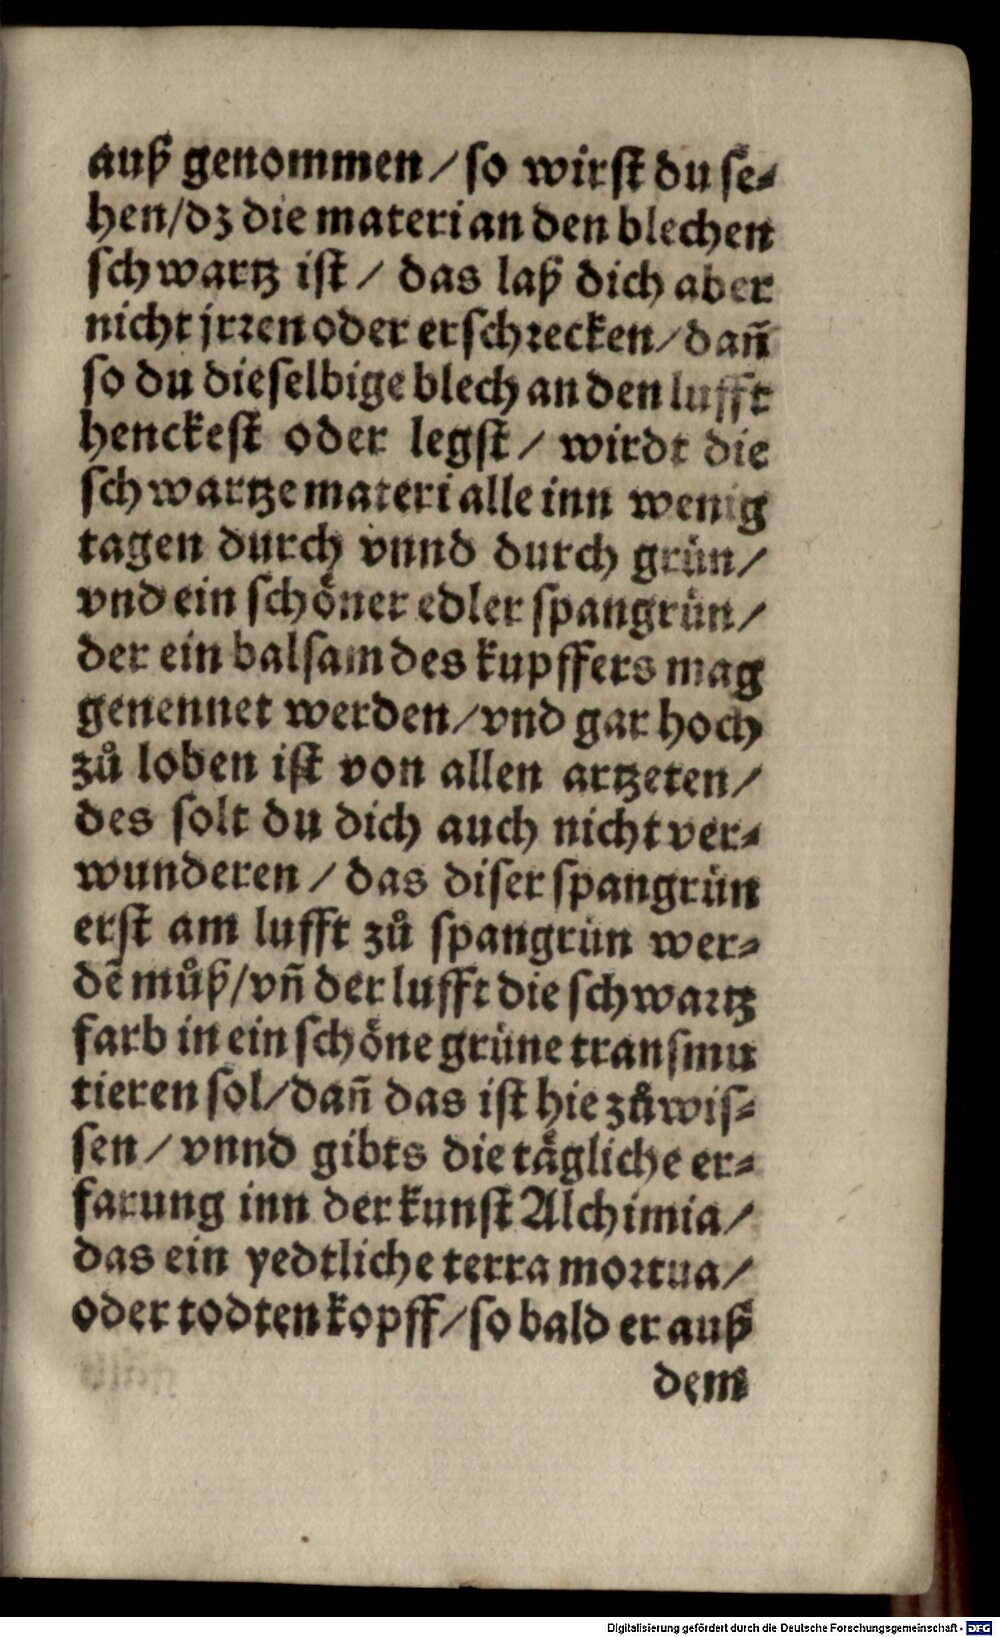 auß genommen / so wirst du se-
hen / dz die materi an den blechen
schwartz ist / das laß dich aber
nicht jrren oder erschrecken / dañ
so du dieselbige blech an den lufft
henckest oder legst / wirdt die
schwartze materi alle inn wenig
tagen durch vnnd durch grün /
vnd ein schöner edler spangrün /
der ein balsam des kupffers mag
genennet werden / vnd gar hoch
zů loben ist von allen artzeten /
des solt du dich auch nicht ver-
wunderen / das diser spangrün
erst am lufft zů spangrün wer-
dẽ můß / vñ der lufft die schwartz
farb in ein schöne grüne transmu
tieren sol / dañ das ist hie zů wis-
sen / vnnd gibts die tägliche er-
farung inn der kunst Alchimia /
das ein yedtliche terra mortua /
oder todten kopff / so bald er auß
dem
Digitalisierung gefördert durch die Deutsche Forschungsgemeinschaft - DFG